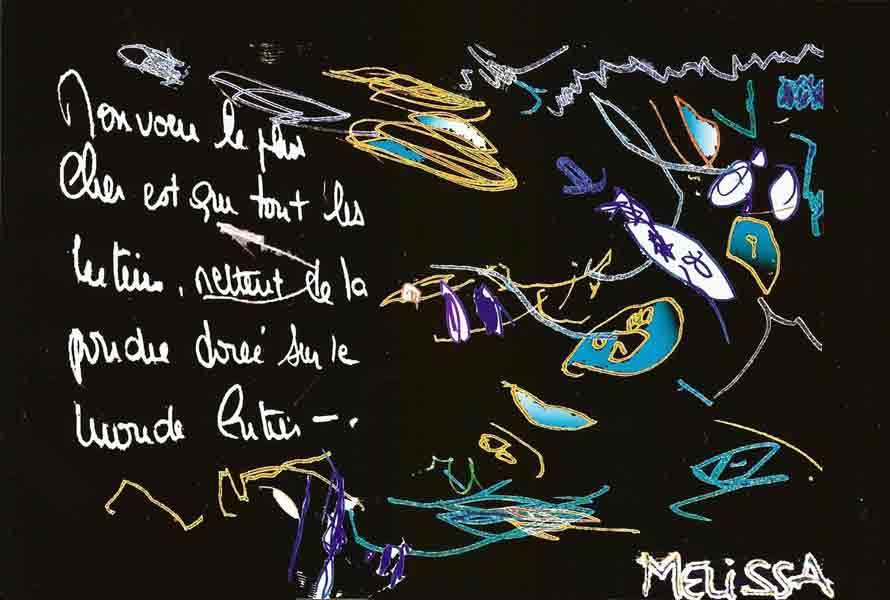 Mon voeu le plus
Cher est que tout les
lutins, mettent de la
poudre doreé sur le
monde Entier -.
MELiSSA